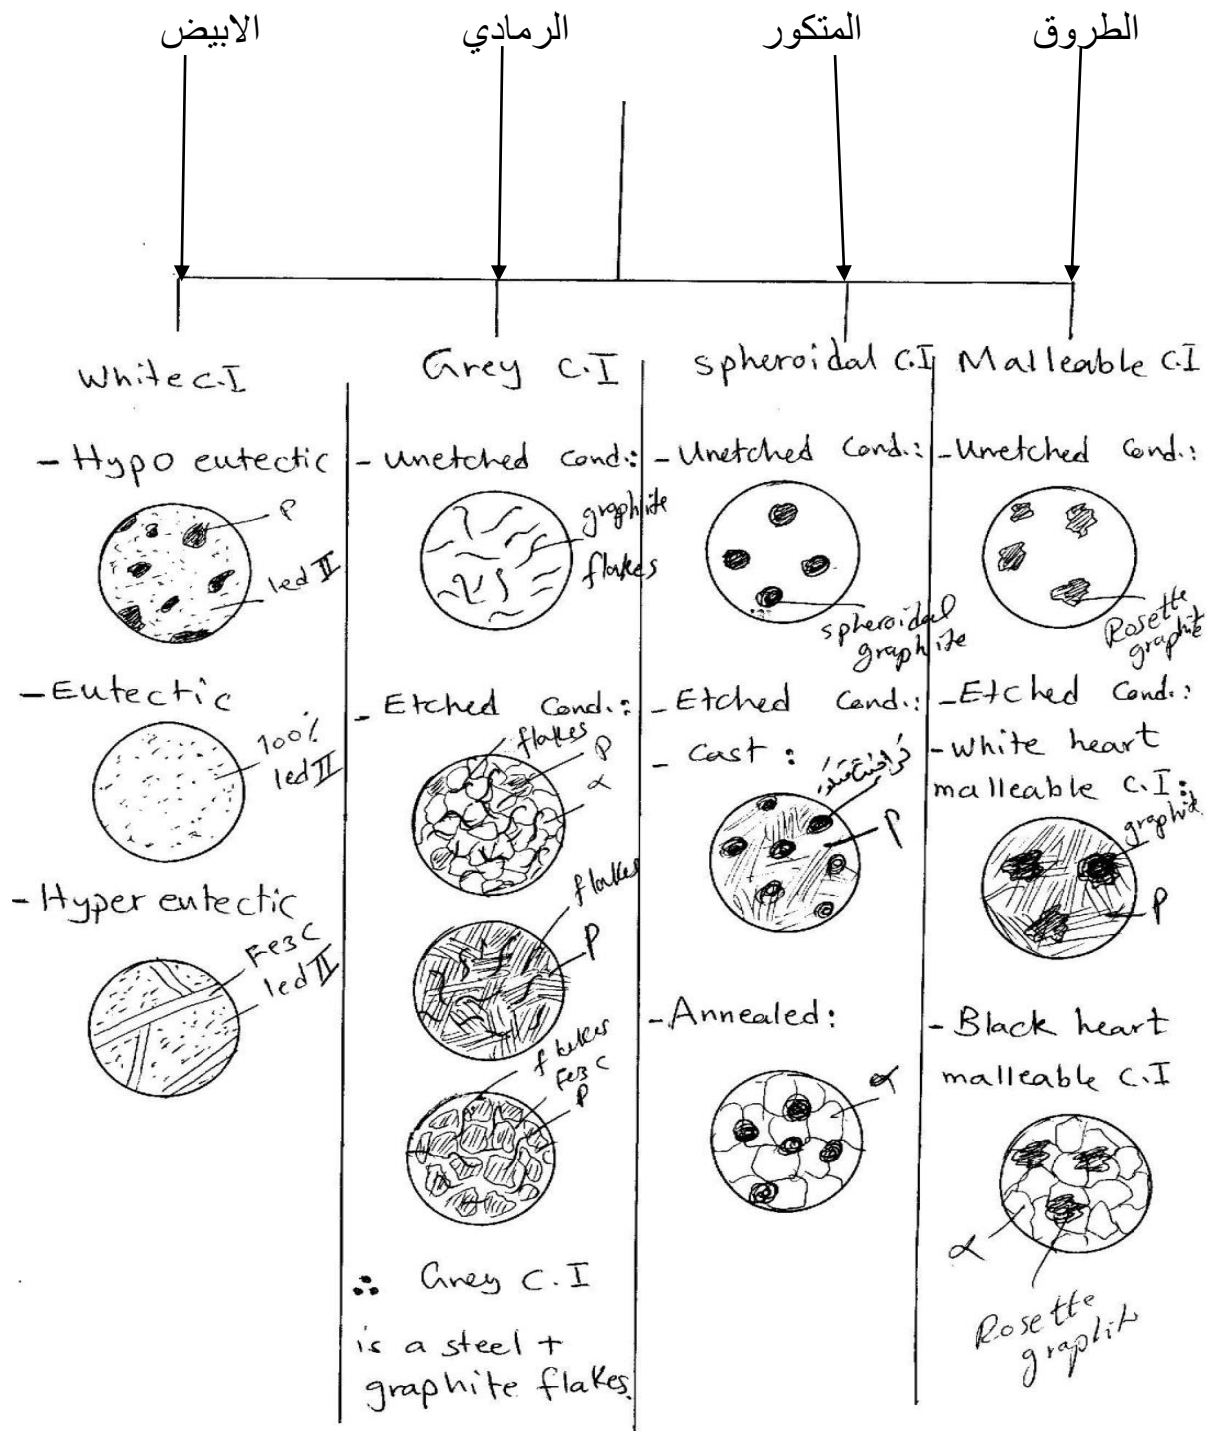 الابيض
الرمادي
المتكور
الطروق
White C.I
- Hypo eutectic
P
led II
- Eutectic
100%
led II
- Hyper eutectic
Fe3C
led II
Grey C.I
- Unetched cond.:
graphite
flakes
- Etched cond.:
flakes
P
α
flakes
P
flakes
Fe3C
P
∴ Grey C.I
is a steel +
graphite flakes.
spheroidal C.I
- Unetched cond.:
spheroidal
graphite
- Etched cond.:
- Cast:
P
- Annealed:
α
Malleable C.I
- Unetched cond.:
Rosette
graphite
- Etched cond.:
- White heart
malleable C.I:
graphite
P
- Black heart
malleable C.I
α
Rosette
graphite